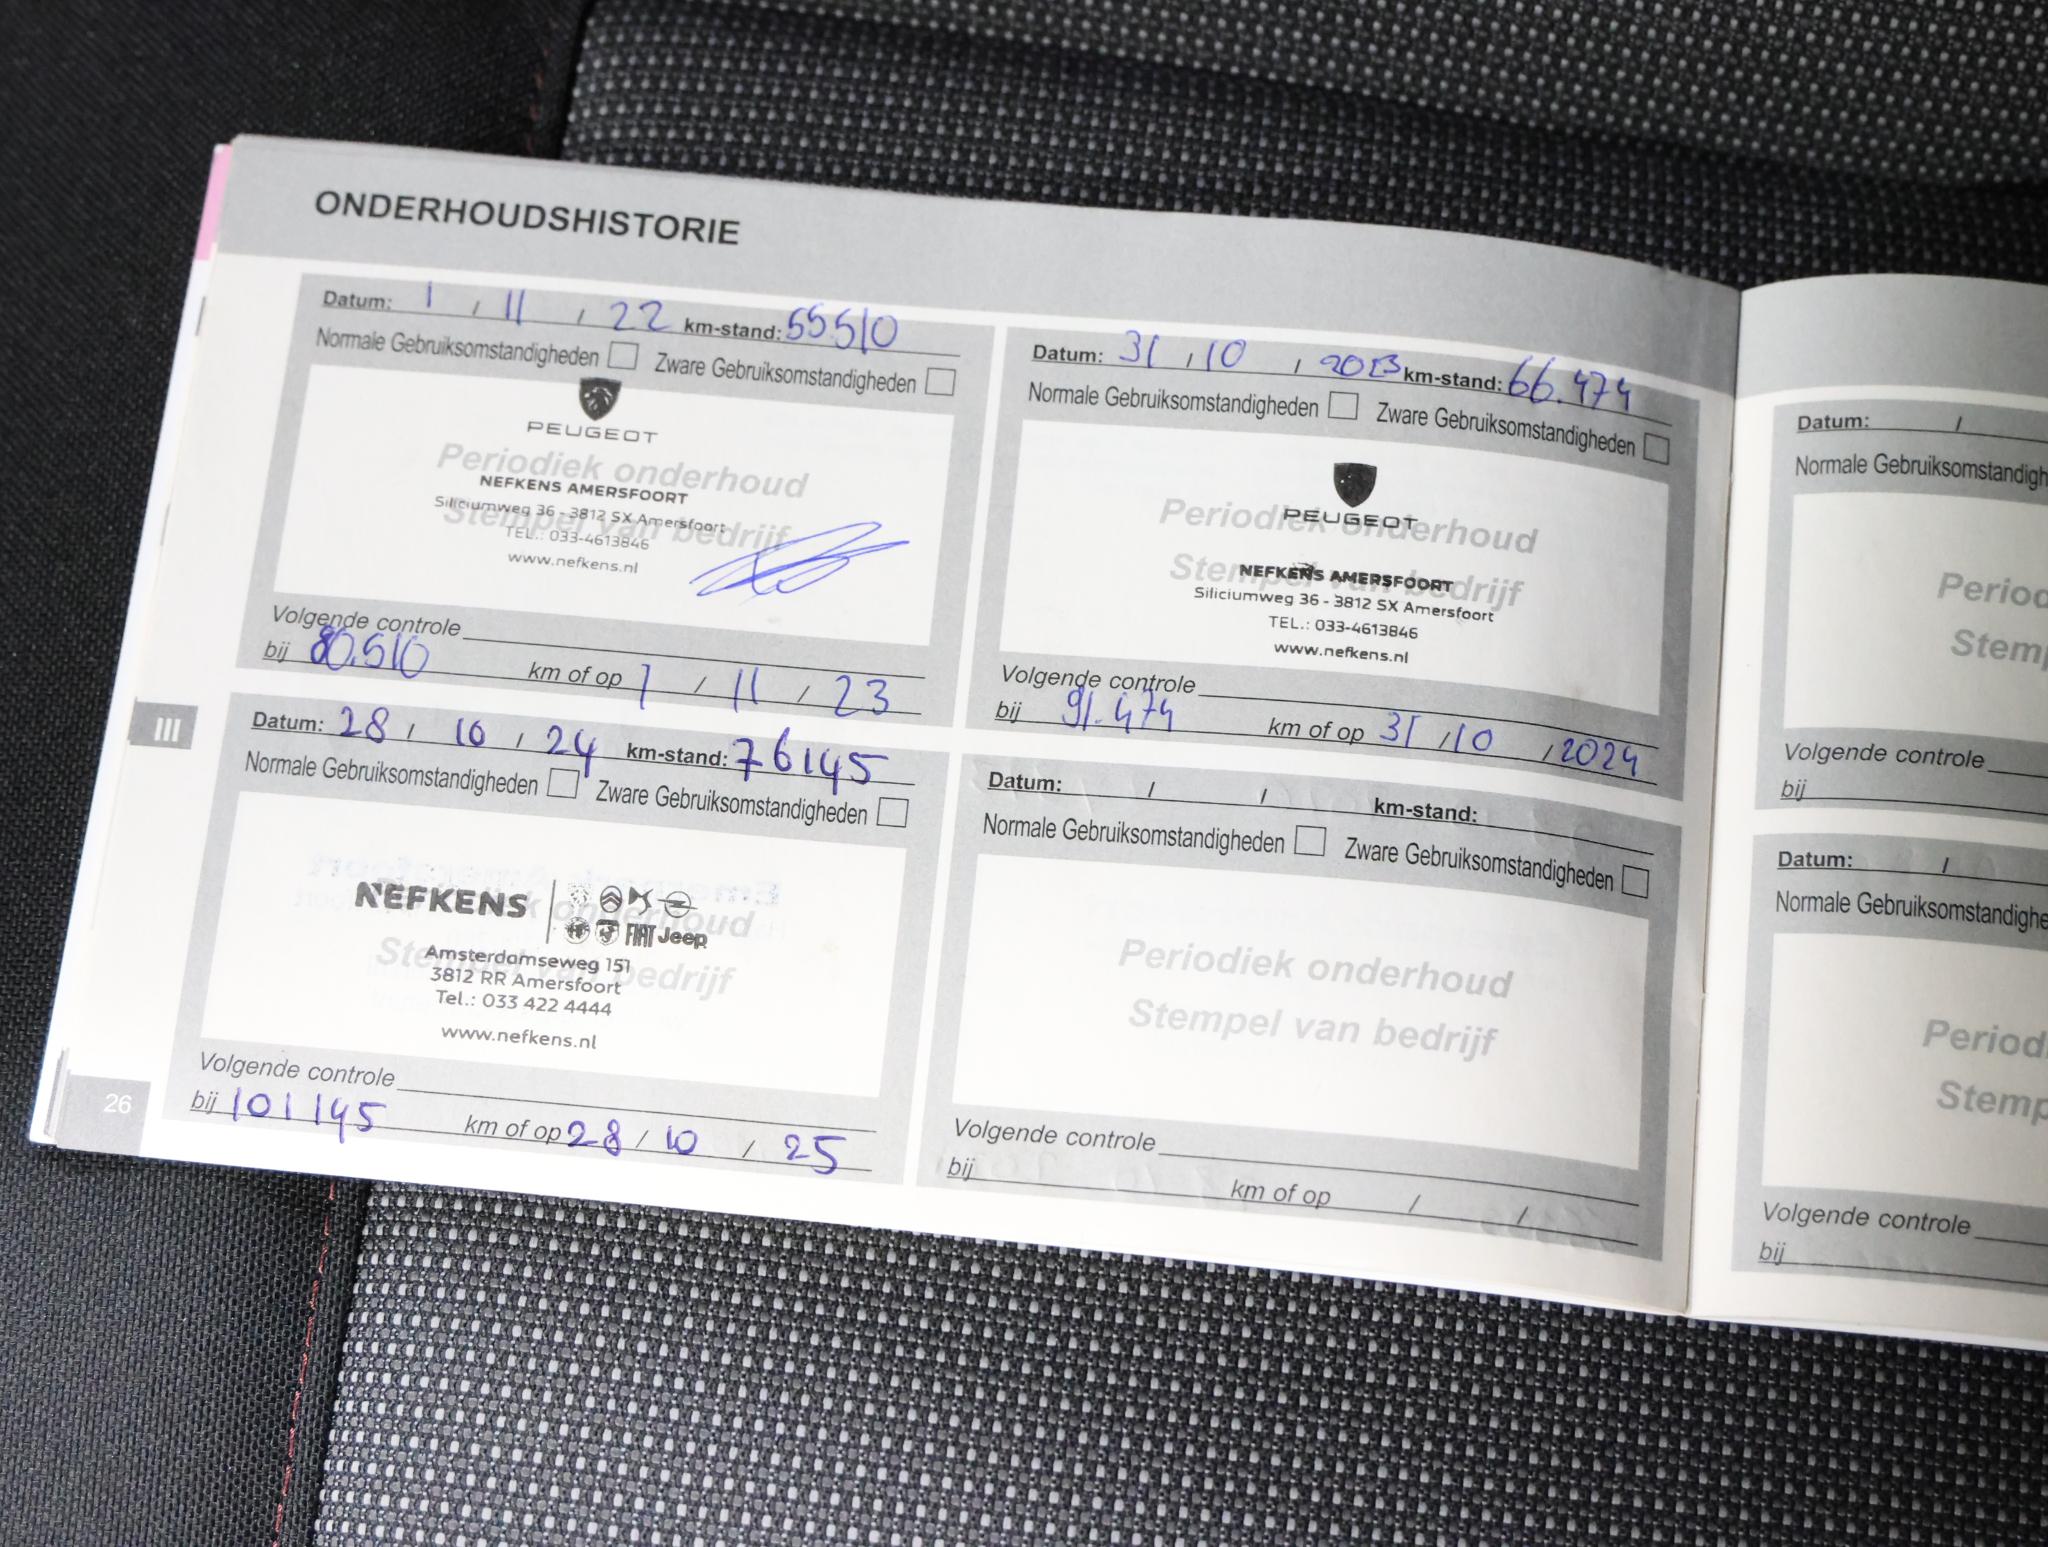 ONDERHOUDSHISTORIE
Datum: 1 / 11 / 22 km-stand: 55.510
Normale Gebruiksomstandigheden Zware Gebruiksomstandigheden
PEUGEOT
Periodiek onderhoud
NEFKENS AMERSFOORT
Siliciumweg 36 - 3812 SX Amersfoort
Stempel van bedrijf
TEL.: 033-4613846
www.nefkens.nl
Volgende controle
bij 80.510 km of op 1 / 11 / 23
Datum: 31 / 10 / 2023 km-stand: 66.474
Normale Gebruiksomstandigheden Zware Gebruiksomstandigheden
PEUGEOT
Periodiek onderhoud
Stempel van bedrijf
NEFKENS AMERSFOORT
Siliciumweg 36 - 3812 SX Amersfoort
TEL.: 033-4613846
www.nefkens.nl
Volgende controle
bij 91.474 km of op 31 / 10 / 2024
III
Datum: 28 / 10 / 24 km-stand: 76145
Normale Gebruiksomstandigheden Zware Gebruiksomstandigheden
NEFKENS
FIAT Jeep
Periodiek onderhoud
Stempel van bedrijf
Amsterdamseweg 151
3812 RR Amersfoort
Tel.: 033 422 4444
www.nefkens.nl
Volgende controle
bij 101145 km of op 28 / 10 / 25
Datum: / / km-stand:
Normale Gebruiksomstandigheden Zware Gebruiksomstandigheden
Periodiek onderhoud
Stempel van bedrijf
Volgende controle
bij km of op / /
26
Datum: /
Normale Gebruiksomstandigh
Period
Stemp
Volgende controle
bij
Datum: /
Normale Gebruiksomstandighe
Period
Stemp
Volgende controle
bij